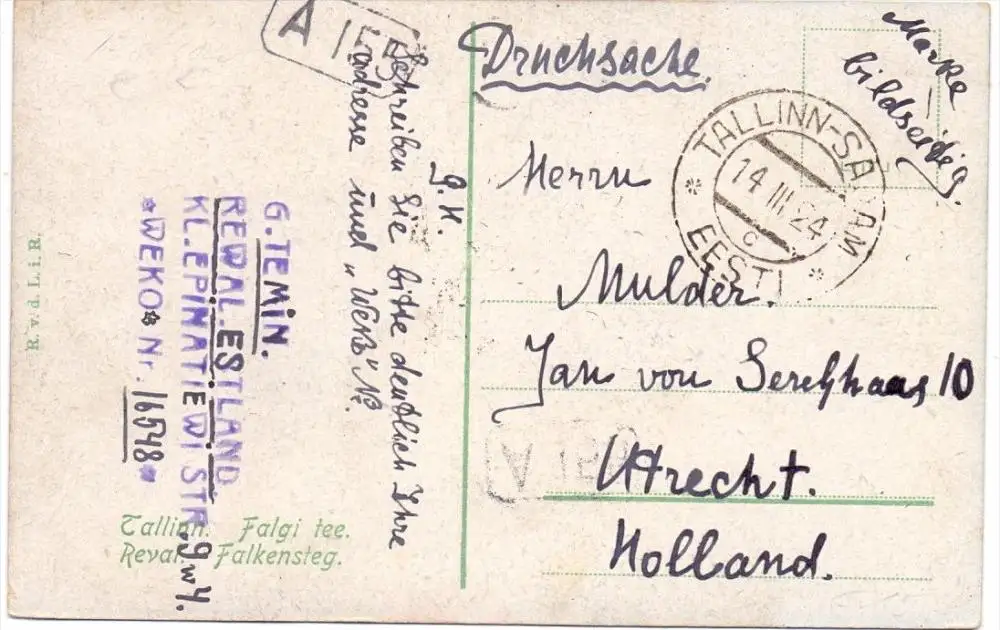 Drucksache.
Marke
bildseitig.
TALLINN-SA AM
14 III 24
C
EESTI
Herrn
Mulder.
Jan von
10
Utrecht.
Holland.
A
G.K.
Schreiben Sie bitte deutlich Ihre
Adresse und „Weko" No.
G. TEMIN.
REWAL. ESTLAND
KL. EPINATIEWI STR. 9 w 4.
*WEKO* Nr. 16548*
Tallinn. Falgi tee.
Reval. Falkensteg.
R. v. d. L. i. R.